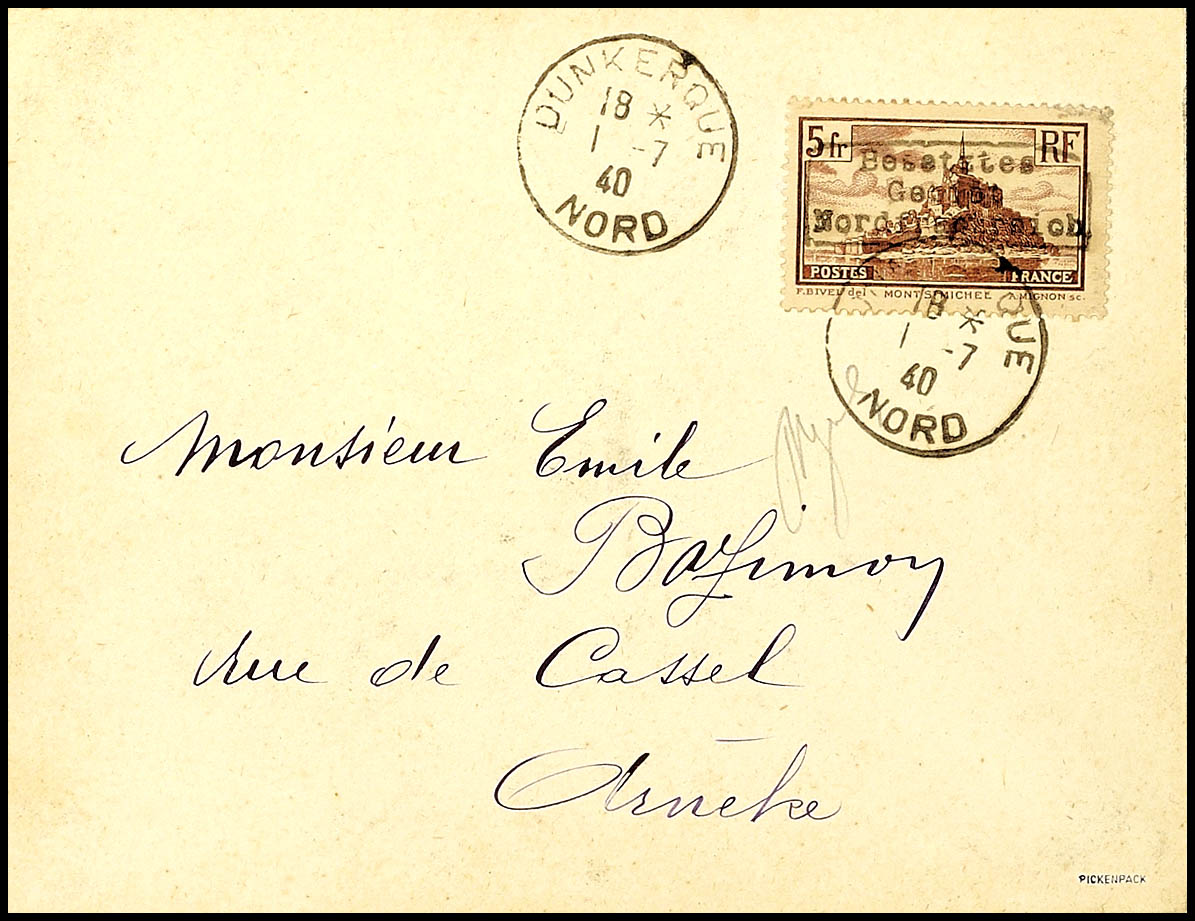 DUNKERQUE
18 *
1 -7
40
NORD
5fr RF
Besetztes
Gebiet
Nordfrankreich
POSTES FRANCE
F. BIVEL del MONT ST MICHEL A. MIGNON sc.
QUE
18 *
1 -7
40
NORD
Monsieur Emile
rue de Cassel
Arnèke
PICKENPACK